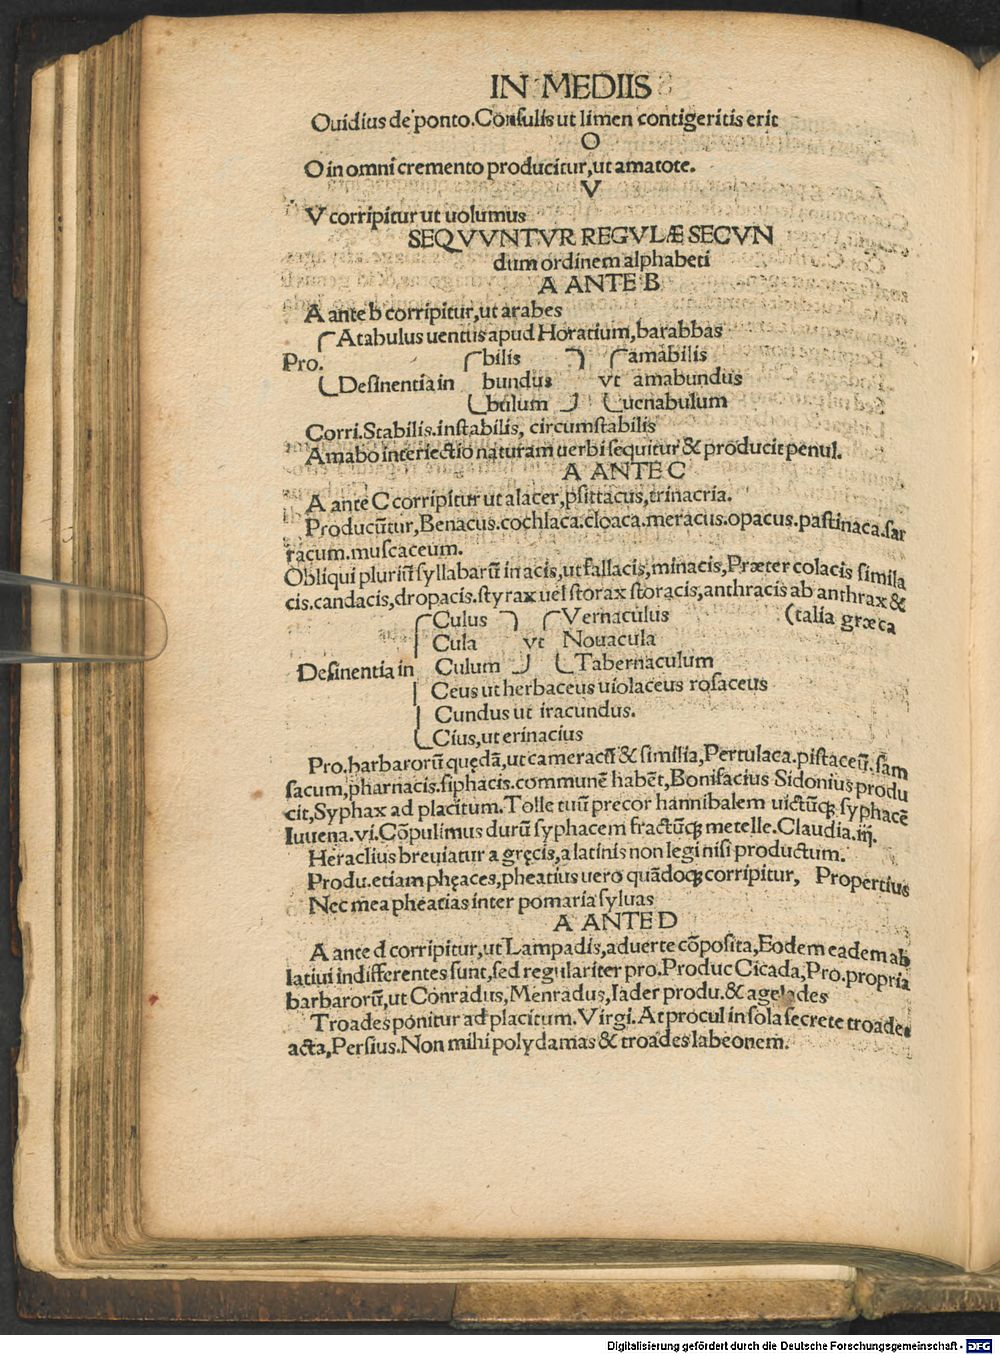 IN MEDIIS
Ouidius de ponto.Consulis ut limen contigeritis erit
O
O in omni cremento producitur,ut amatote.
V
V corripitur ut uolumus
SEQVVNTVR REGVLÆ SECVN
dum ordinem alphabeti
A ANTE B
A ante b corripitur,ut arabes
Atabulus uentus apud Horatium,barabbas
Pro. bilis amabilis
Desinentia in bundus vt amabundus
bulum uenabulum
Corri.Stabilis.instabilis, circumstabilis
Amabo interiectio naturam uerbi sequitur & producit penul.
A ANTE C
A ante C corripitur ut alacer,psittacus,trinacria.
Producūtur,Benacus.cochlaca.cloaca.meracus.opacus.pastinaca.sar
racum.muscaceum.
Obliqui pluriū syllabarū in acis,ut fallacis,minacis,Præter colacis simila
cis.candacis,dropacis.styrax uel storax storacis,anthracis ab anthrax &
(talia græca
Culus Vernaculus
Cula vt Nouacula
Desinentia in Culum Tabernaculum
Ceus ut herbaceus uiolaceus rosaceus
Cundus ut iracundus.
Cius,ut erinacius
Pro.barbarorū quędā,ut cameracū & similia,Pertulaca.pistaceū.sam
sacum,pharnacis.siphacis.communē habēt,Bonifacius Sidonius produ
cit,Syphax ad placitum.Tolle tuū precor hannibalem uictūqꝫ syphacē
Iuuena.vi.Cōpulimus durū syphacem fractūqꝫ metelle.Claudia.iij.
Heraclius breuiatur a gręcis,a latinis non legi nisi productum.
Produ.etiam phęaces,pheatius uero quādoqꝫ corripitur, Propertius
Nec mea pheatias inter pomaria syluas
A ANTE D
A ante d corripitur,ut Lampadis,aduerte cōposita,Eodem eadem ab
latiui indifferentes sunt,sed regulariter pro.Produc Cicada,Pro.propria
barbarorū,ut Conradus,Menradus,Iader produ.& agelades
Troades ponitur ad placitum.Virgi.At procul in sola secrete troades
acta,Persius.Non mihi polydamas & troades labeonem.
Digitalisierung gefördert durch die Deutsche Forschungsgemeinschaft - DFG